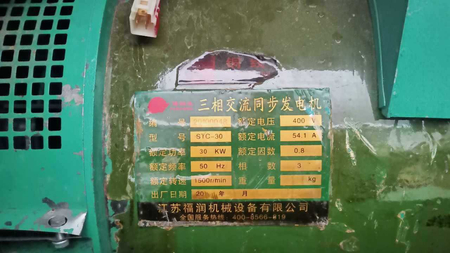 三相交流同步发电机
额定电压 400 V
型 号 STC-30 额定电流 54.1 A
额定功率 30 KW 额定因数 0.8
额定频率 50 Hz 相 数 3
额定转速 1500r/min 重 量 kg
出厂日期 年 月
江苏福润机械设备有限公司
全国服务热线